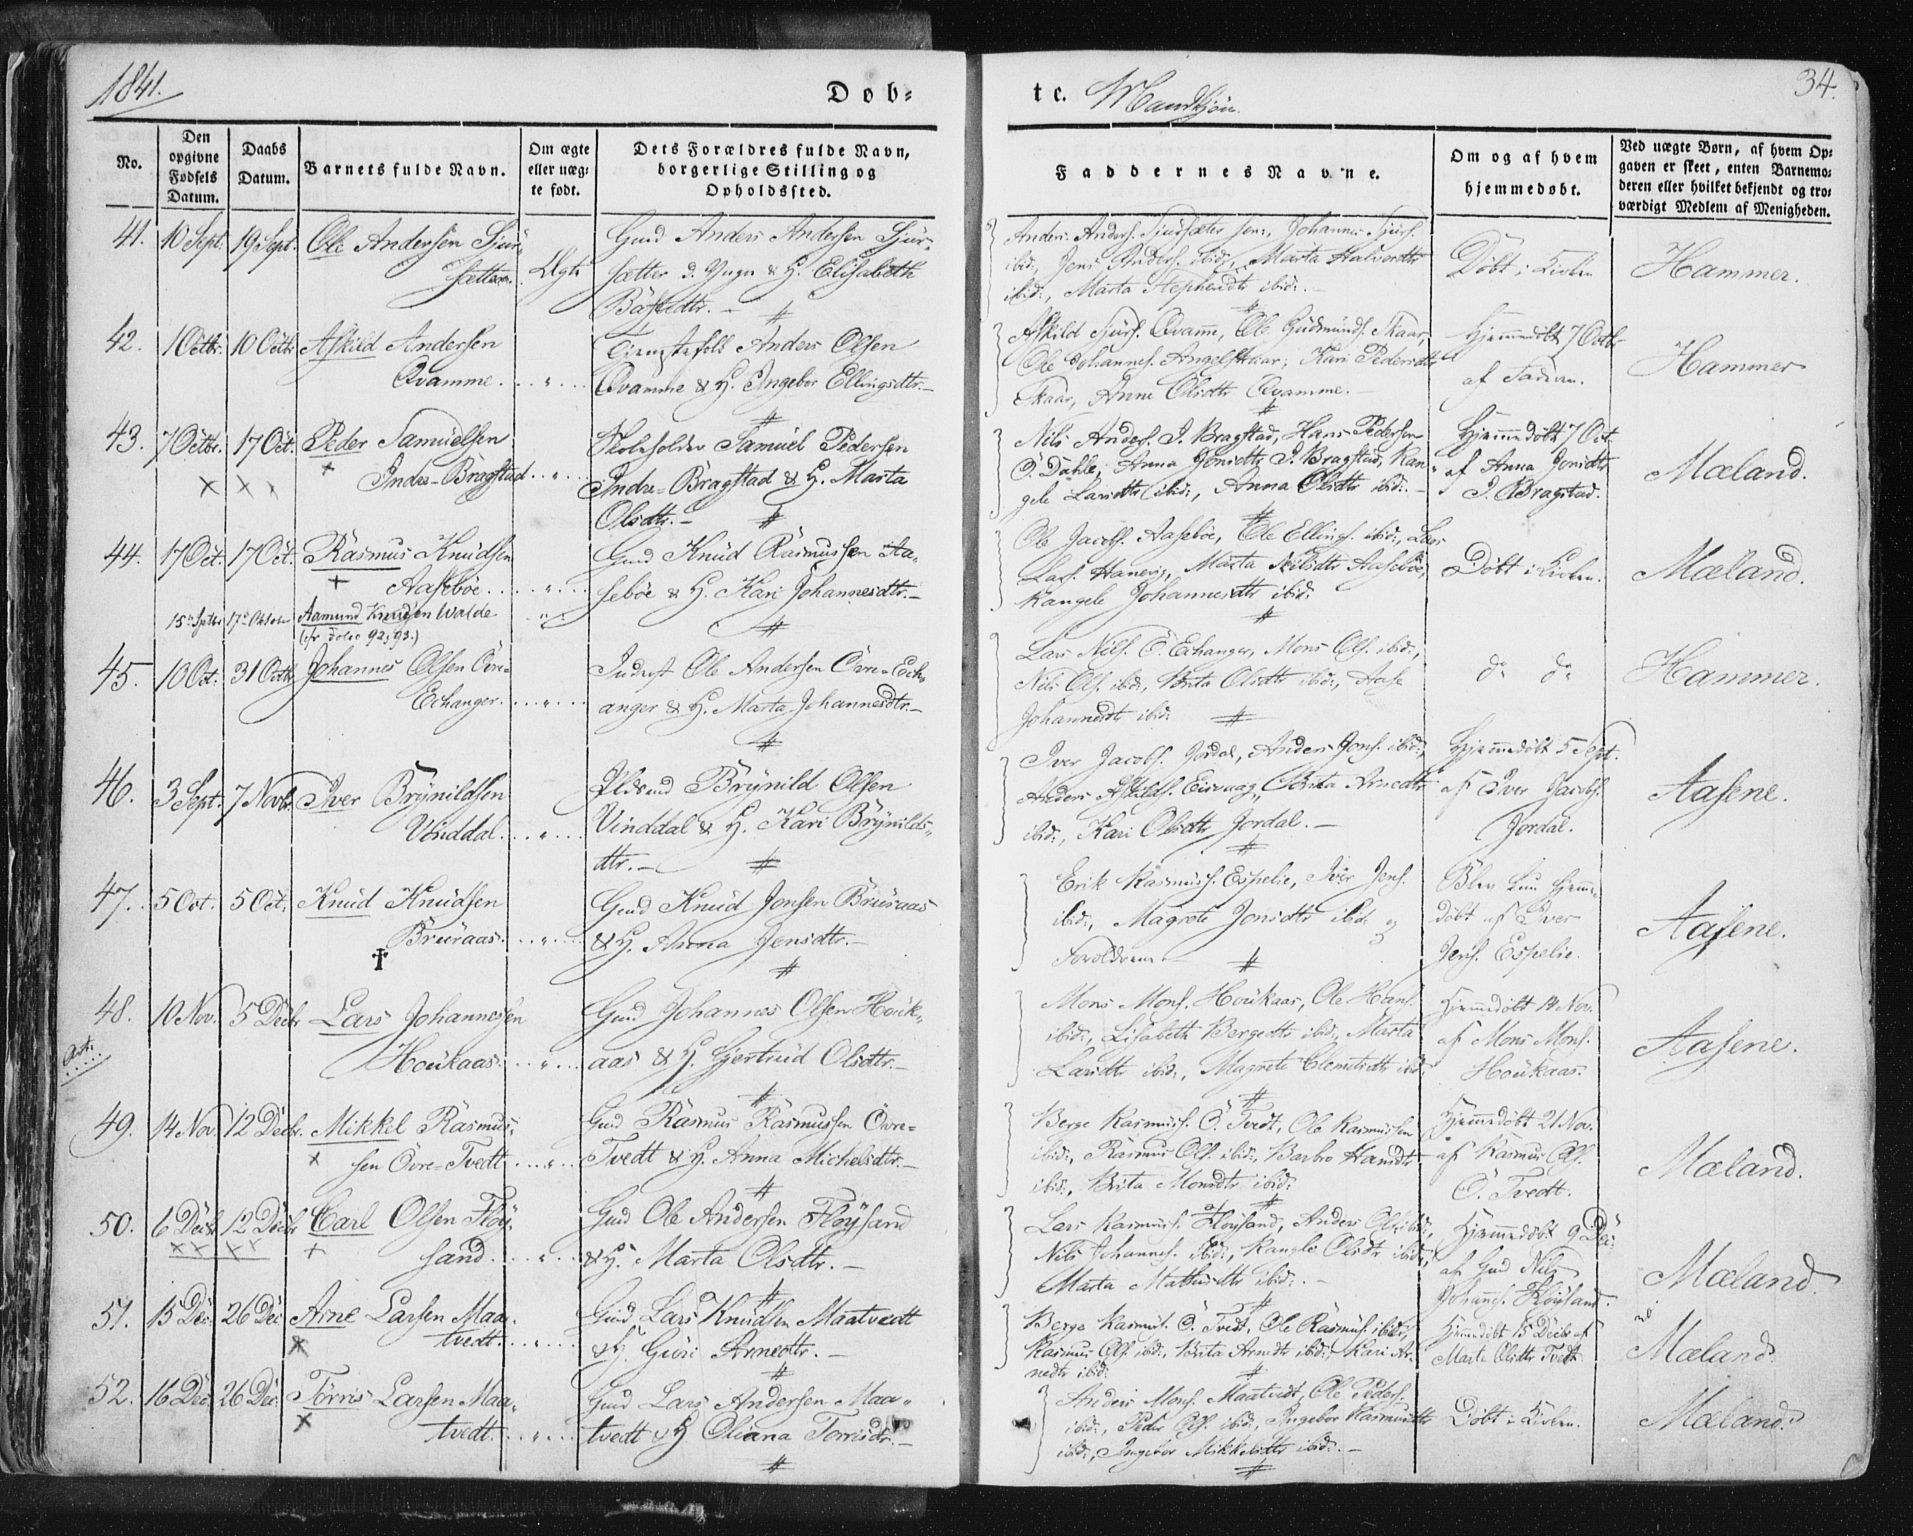 1841.
Døb-
te. Mandkjøn.
34.
No.
Den opgivne Fødsels Datum.
Daabs Datum.
Barnets fulde Navn.
Om ægte eller uægte født.
Dets Forældres fulde Navn, borgerlige Stilling og Opholdssted.
Faddernes Navne.
Om og af hvem hjemmedøbt.
Ved uægte Børn, af hvem Opgaven er skeet, enten Barnemoderen eller hvilket bekjendt og troværdigt Medlem af Menigheden.
41. 10 Sept. 19 Sept. Ole Andersen Sjur-
sætter. Ægte
Gmd Anders Andersen Sjur-
sætter d. Yngre & H. Elisabeth
Anders Anders. Sjursæter sen., Johannes Sjurs.
ibid., Jens Anders. ibid., Marta Halvorsdtr
ibid., Marta Stephensdtr ibid. –
Døbt i Kirken
Hammer.
42. 1 Octbr. 10 Octbr Askild Andersen
Qvamme. „
Tjenstefolk Anders Olsen
Qvamme & H. Ingebor Ellingsdtr. –
Askild Sjurs. Qvamme, Ole Gudmunds. Skaar,
Ole Johannes. Angelskaar, Kari Pedersdtr
Skaar, Anne Olsdtr Qvamme. –
Hjemmedøbt 7 Octbr
af Faderen.
Hammer
43. 7 Octbr. 17 Oct. Peder Samuelsen
Indre-Bragstad „
Skoleholder Samuel Pedersen
Indre-Bragstad & H. Marta
Olsdtr. –
Nils Anders. I. Bragstad, Hans Pedersen
Ö. Dahle, Anna Jonsdtr I. Bragstad, Ran-
gele Larsdtr ibid., Anna Olsdtr ibid. –
Hjemmedøbt 7 Oct.
af Anna Jonsdtr
I. Bragstad.
Mæland.
44. 17 Oct. 17 Oct. Rasmus Knudsen
Aasebøe „
Gmd Knud Rasmussen Aa-
sebøe & H. Kari Johannesdtr. –
Ole Jacobs. Aasebøe, Ole Ellings. ibid., Lars
Lars. Hanevig, Marta Nilsdtr Aasebøe,
Rangele Johannesdtr ibid.
Døbt i Kirken.
Mæland.
15de Septbr 17de Oktober Aamund Knudsen Walde
(cfr folio 92, 93.)
45. 10 Oct. 31 Octbr Johannes Olsen Övre-
Echanger. „
Inderst Ole Andersen Övre-Ech-
anger & H. Marta Johannesdtr. –
Lars Nils. Ö. Echanger, Mons Ols. ibid.,
Nils Ols. ibid., Brita Olsdtr ibid., Aase
Johannesdtr ibid.
do do
Hammer.
46. 3 Sept. 7 Novbr. Iver Brynildsen
Vinddal. „
Brynild Olsen
Vinddal & H. Kari Brynilds-
dtr. –
Iver Jacobs. Jordal, Anders Jons. ibid.,
Anders Askilds. Eisvaag, Brita Arnedtr
ibid., Kari Olsdtr Jordal. –
Hjemmedøbt 5 Sept.
af Iver Jacobs.
Jordal.
Aasene.
47. 5 Oct. 5 Oct. Knud Knudsen
Bruraas. „
†
Gmd Knud Jonsen Bruraas
& H. Anna Jensdtr. –
Erik Rasmus. Espelie, Iver Jens.
ibid., Magrete Jonsdtr ibid. og
Foreldrene
Blev kun hjemme-
døbt af Iver
Jens. Espelie.
Aasene.
48. 10 Nov. 5 Decbr Lars Johannessen
Houkaas. „
Gmd Johannes Olsen Houk-
aas & H. Gjertrud Olsdtr. –
Mons Mons. Houkaas, Ole Hans.
ibid., Lisabeth Bergesdtr ibid., Marta
Larsdtr ibid., Magrete Clemetsdtr ibid.
Hjemmedøbt 14 Nov.
af Mons Mons.
Houkaas.
Aasene.
49. 14 Nov. 12 Decbr. Mikkel Rasmus-
sen Övre-Tvedt „
Gmd Rasmus Rasmussen Övre-
Tvedt & H. Anna Michelsdtr. –
Berge Rasmus. Ö. Tvedt, Ole Rasmussen
ibid., Rasmus Ols. ibid., Barbro Hansdtr
ibid., Brita Monsdtr ibid.
Hjemmedøbt 21 Nov.
af Rasmus Ols.
Ö. Tvedt.
Mæland.
50. 6 Decbr 12 Decbr Carl Olsen Fløy-
sand. „
Gmd Ole Andersen Fløysand
& H. Marta Olsdtr. –
Lars Rasmus. Fløysand, Anders Ols. ibid.,
Nils Johannes. ibid., Rangle Olsdtr ibid.,
Marta Mathisdtr ibid. –
Hjemmedøbt 9 Dec.
af Gmd Nils
Johannes. Fløysand.
Mæland.
51. 15 Dec. 26 Dec Arne Larsen Maa-
tvedt. „
Gmd Lars Knudsen Maatvedt
& H. Guri Arnedtr. –
Berge Rasmus. Ö. Tvedt, Ole Rasmus. ibid.,
Rasmus Ols. ibid., Brita Arnedtr ibid., Kari Ar-
nedtr ibid.
Hjemmedøbt 15 Decbr af
Marta Olsdtr Tvedt
Mæland.
52. 16 Dec. 26 Dec. Torris Larsen Maa-
tvedt. „
Gmd Lars Andersen Maa-
tvedt & H Oliana Torrisdtr. –
Anders Mons. Maatvedt, Ole Peders.
ibid., Peder Ols. ibid., Ingebor Rasmusdtr
ibid., Ingebor Mikkelsdtr ibid. –
Døbt i Kirken.
Mæland.